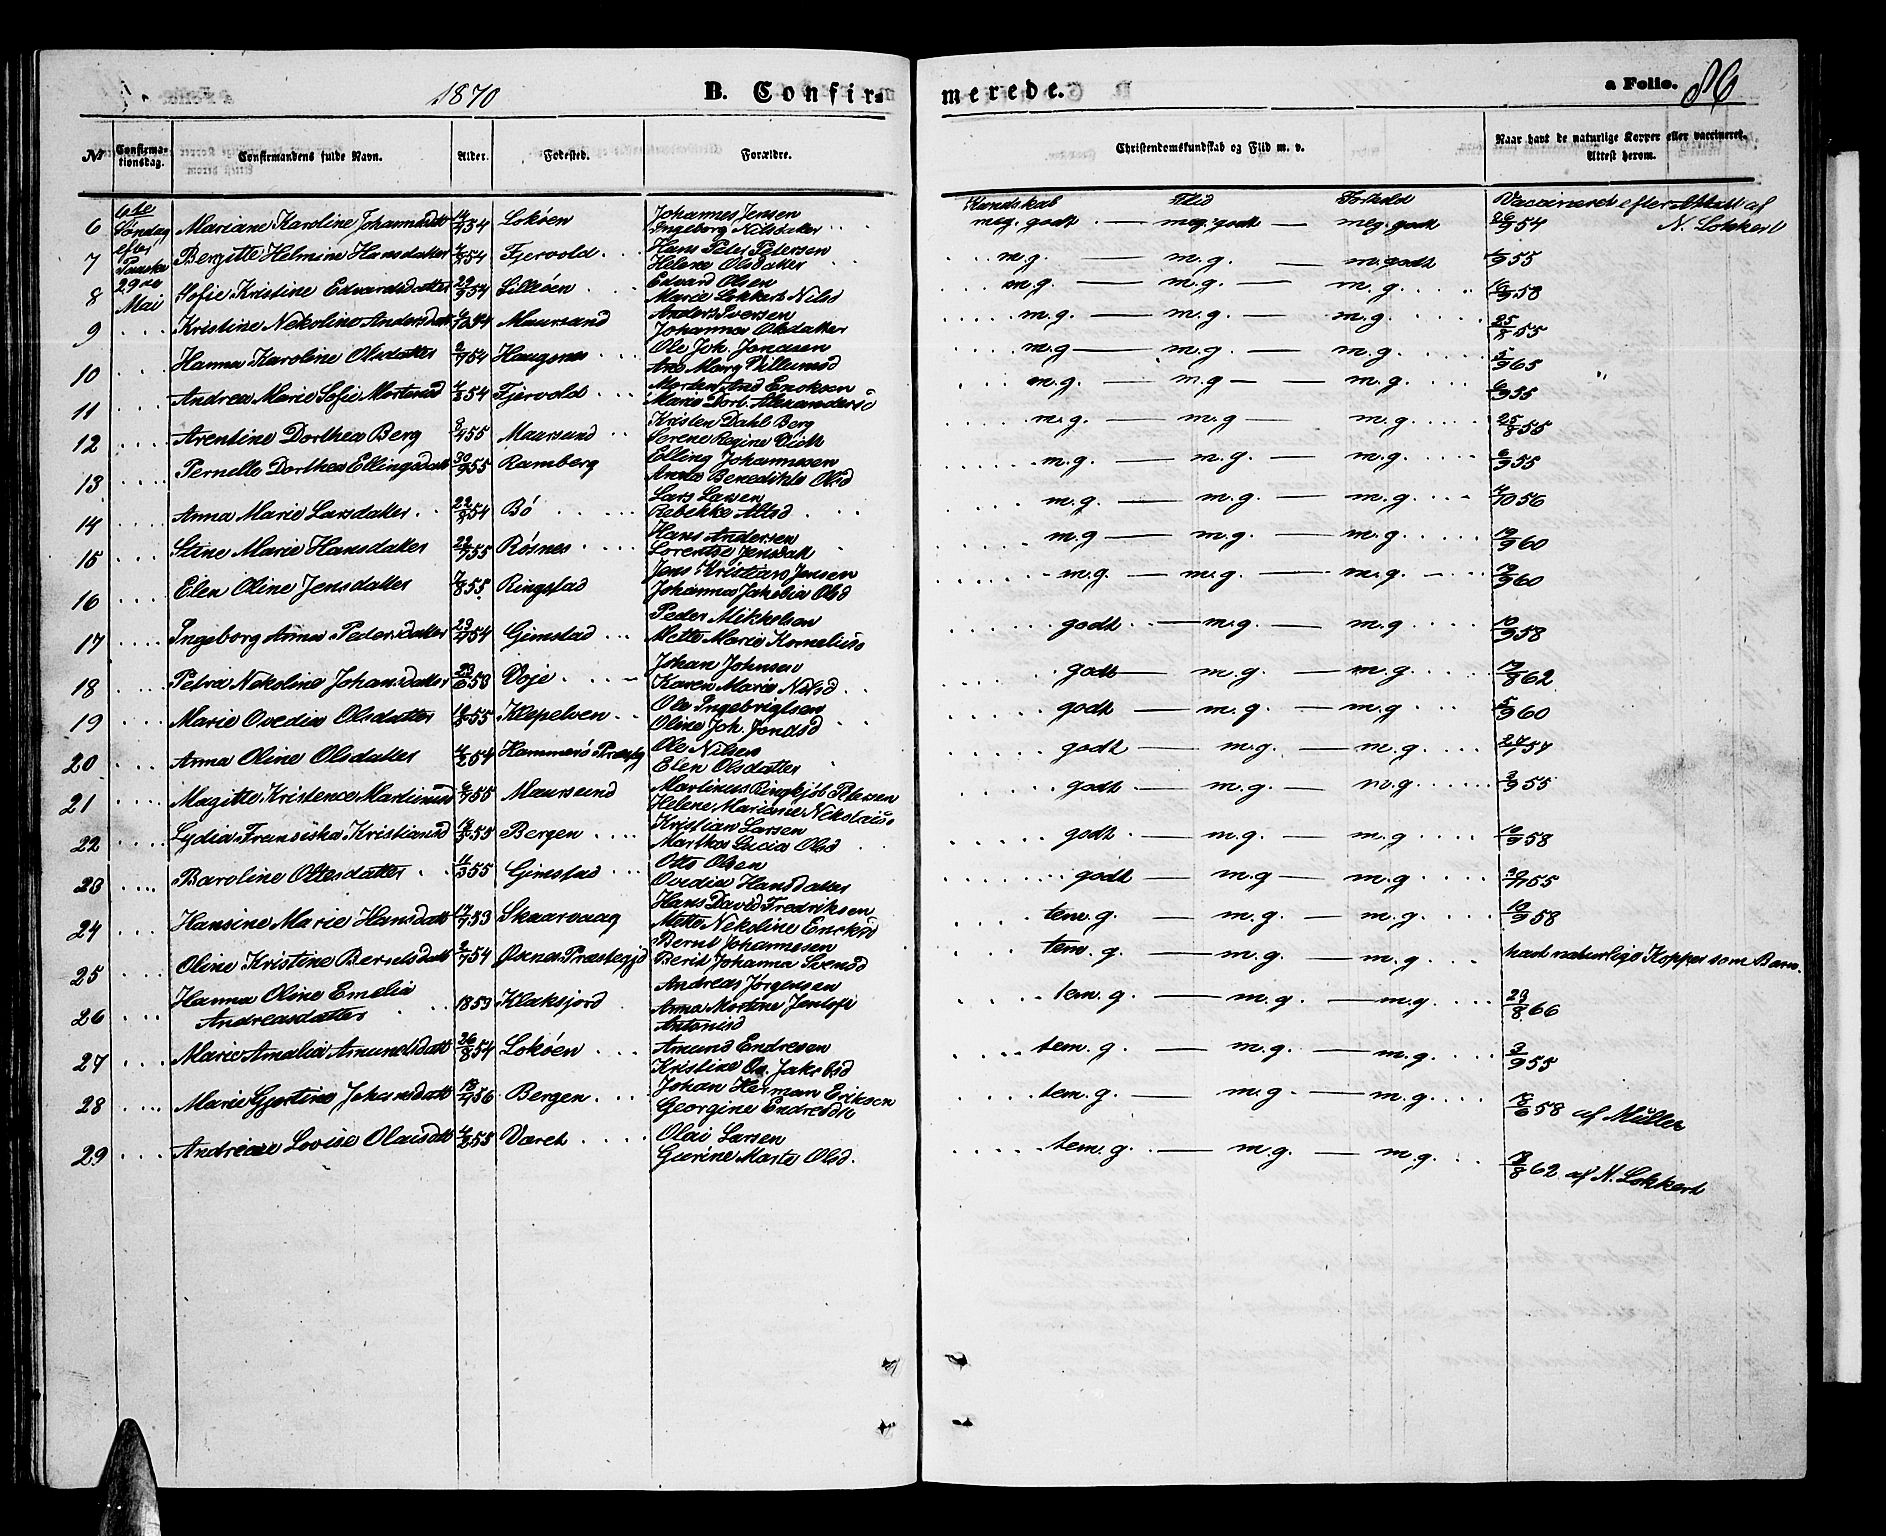 1870 B. Confirmerede. a Folio. 86
No Confirmationsdag. Confirmandens fulde Navn. Alder. Fødested. Forældre. Christendomskundskab og Flid m. v. Naar havt de naturlige Kopper eller vaccineret. Attest herom.
6te Søndag efter Paaske 29de Mai
Kundskab Flid Forhold Vaccineret efter Attest af N. Lokkert
6 Mariane Karoline Johannesdatt 54 Lokøen Johannes Jensen Ingeborg Nilsdatter meg. godt — meg. godt — meg. godt 26/9 54
7 Bergitte Helmine Hansdatter 54 Fjervold Hans Peter Petersen Helene Olsdatter m.g. — m.g. — m. godt 55
8 Sofie Kristine Edvardsdatter 29/9 54 Lilleøen Edvard Olsen Marie Lokkert Nilsd m.g. — m.g. — m.g. 58
9 Kristine Nekoline Andersdatt 54 Maursund Anders Iversen Johanna Olsdatter m.g. — m.g. — m.g. 25/8 55
10 Hanna Karoline Olsdatter 54 Haugsnes Ole Joh. Jonasen Ane Marg Villumsd m.g — m.g. — m.g. 65
11 Andrea Marie Sofie Mortensd 54 Fjervold Morten And Eriksen Marie Dort. Alexandersd m.g. — m.g — m.g. 55
12 Arentine Dorthea Berg 55 Maursund Kristen Dahl Berg Serene Regine m.g. — m.g — m.g. 25/8 55
13 Pernelle Dorthea Ellingsdatt 55 Ramberg Elling Johannesen Anna Benedikte Olsd m.g. — m.g. — m.g. 55
14 Anna Marie Larsdatter 22/8 54 Bö Lars Larsen Rebekka m.g. — m.g. — m.g. 56
15 Stine Marie Hansdatter 55 Rösnes Hans Andersen Lorentse Jensdatt m.g — m.g. — m.g. 60
16 Elen Oline Jensdatter 7/8 55 Ringstad Jens Kristian Jensen Johanna Jakobia Olsd m.g. — m.g. — m.g. 60
17 Ingeborg Anna Pedersdatter 54 Gimstad Peder Mikkelsen Mette Marie Kornelius godt — m.g. — m.g. 10/9 58
18 Petra Nekoline Johansdatter Voje Johan Johnsen Karen Marie Nilsd godt — m.g. — m.g. 62
19 Marie Ovedia Olsdatter 55 Klepelven Ole Ingebrigtsen Oline Joh. Jonasd godt — m.g. — m.g. 60
20 Anna Oline Olsdatter 54 Hammerö Præstg Ole Nilsen Elen Olsdatter godt — m.g. — m.g.
21 Magitte Kristence Martinusd 55 Maursund Martinus Ringkjöb Petersen Helene Mariane Nikolaiss godt — m.g. — m.g 55
22 Lydia Fransiska Kristiansd 55 Bergen Kristian Larsen Martha Lucia Olsd godt — m.g. — m.g 10/9 58
23 Baroline Ottesdatter 55 Gimstad Otto Olsen Ovedia Hansdatter godt — m.g — m.g. 55
24 Hansine Marie Hansdatt 53 Skaarvaag Hans David Fredriksen Mette Nekoline Eriksd tem. g. — m.g — m.g. 10/9 58
25 Oline Kristine Berntsdatt 54 Öxnes Præstegjd Bernt Johannesen Berit Johanna Svensd tem. g. — m.g. — m.g. havt naturlige Kopper som Barn.
26 Hanna Oline Emelia Andreasdatter 1853 Klaksjord Andreas Jörgensen Anna Martine Antonisd tem. g. — m.g. — m.g 29/8 66
27 Marie Amalia Amundsdatt 26/8 54 Lokøen Amund Endresen Kristine Jakobsd tem. g. — m.g. — m.g. 3/9 55
28 Marie Gjertine Johansdatt 56 Bergen Johan Herman Eriksen Georgine tem. g. — m.g. — m.g. 58 af Müller
29 Andreae Lovise Olaisdatt 55 Været Olai Larsen Gjerine Marta Olsd. tem. g. — m.g. — m.g. 62 af N. Lokkert